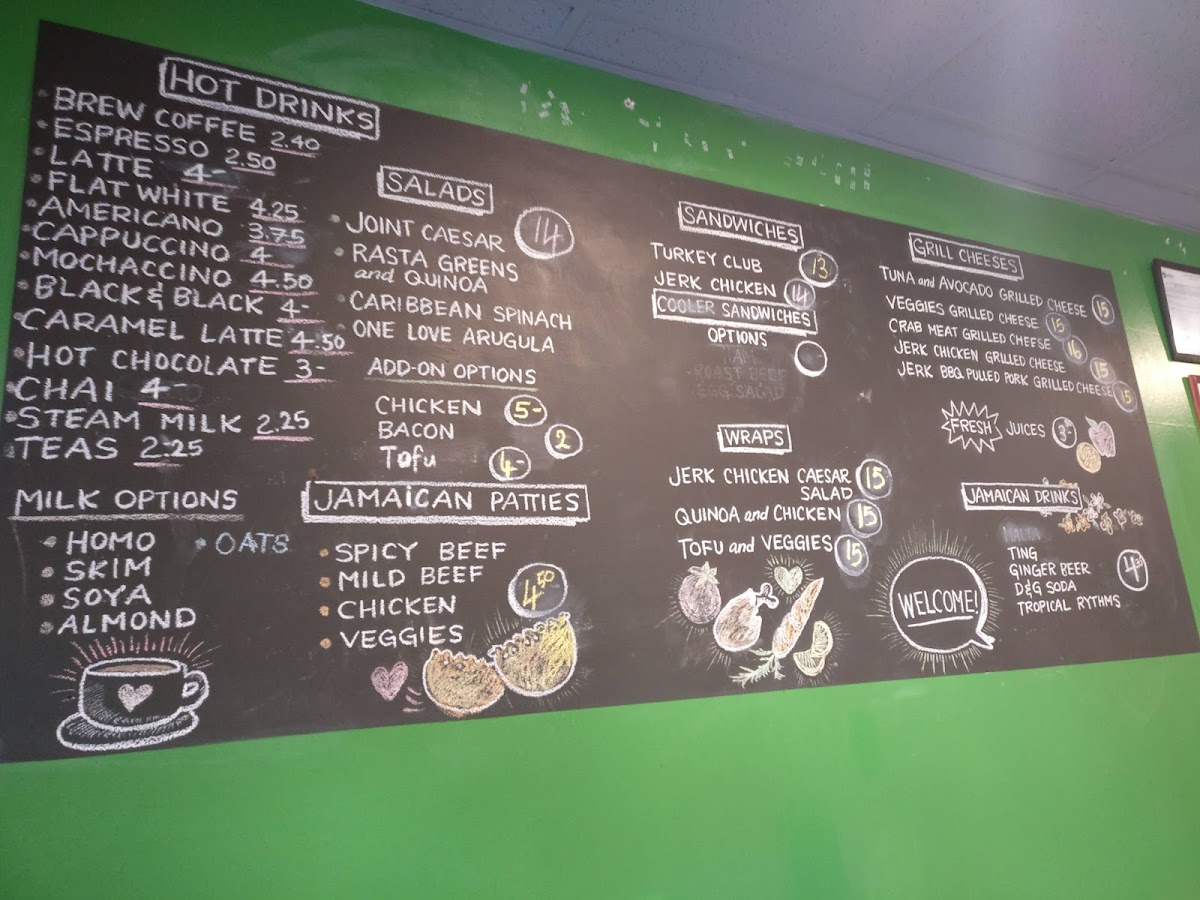 HOT DRINKS
• BREW COFFEE 2.40
• ESPRESSO 2.50
• LATTE 4-
• FLAT WHITE 4.25
• AMERICANO 3.75
• CAPPUCCINO 4-
• MOCHACCINO 4.50
• BLACK & BLACK 4-
• CARAMEL LATTE 4.50
• HOT CHOCOLATE 3-
• CHAI 4-
• STEAM MILK 2.25
• TEAS 2.25
MILK OPTIONS
• HOMO
• OATS
• SKIM
• SOYA
• ALMOND
SALADS
14
• JOINT CAESAR
• RASTA GREENS
and QUINOA
• CARIBBEAN SPINACH
• ONE LOVE ARUGULA
ADD-ON OPTIONS
CHICKEN 5-
BACON 2
Tofu 4-
JAMAICAN PATTIES
• SPICY BEEF
• MILD BEEF
• CHICKEN
• VEGGIES
4.50
SANDWICHES
TURKEY CLUB 13
JERK CHICKEN 14
COOLER SANDWICHES
OPTIONS
HAM
• ROAST BEEF
EGG SALAD
WRAPS
JERK CHICKEN CAESAR
SALAD 15
QUINOA and CHICKEN 15
TOFU and VEGGIES 15
GRILL CHEESES
TUNA and AVOCADO GRILLED CHEESE 15
VEGGIES GRILLED CHEESE 15
CRAB MEAT GRILLED CHEESE 16
JERK CHICKEN GRILLED CHEESE 15
JERK BBQ PULLED PORK GRILLED CHEESE 15
FRESH JUICES
WELCOME!
JAMAICAN DRINKS
MALTA
TING
GINGER BEER
D&G SODA
TROPICAL RYTHMS